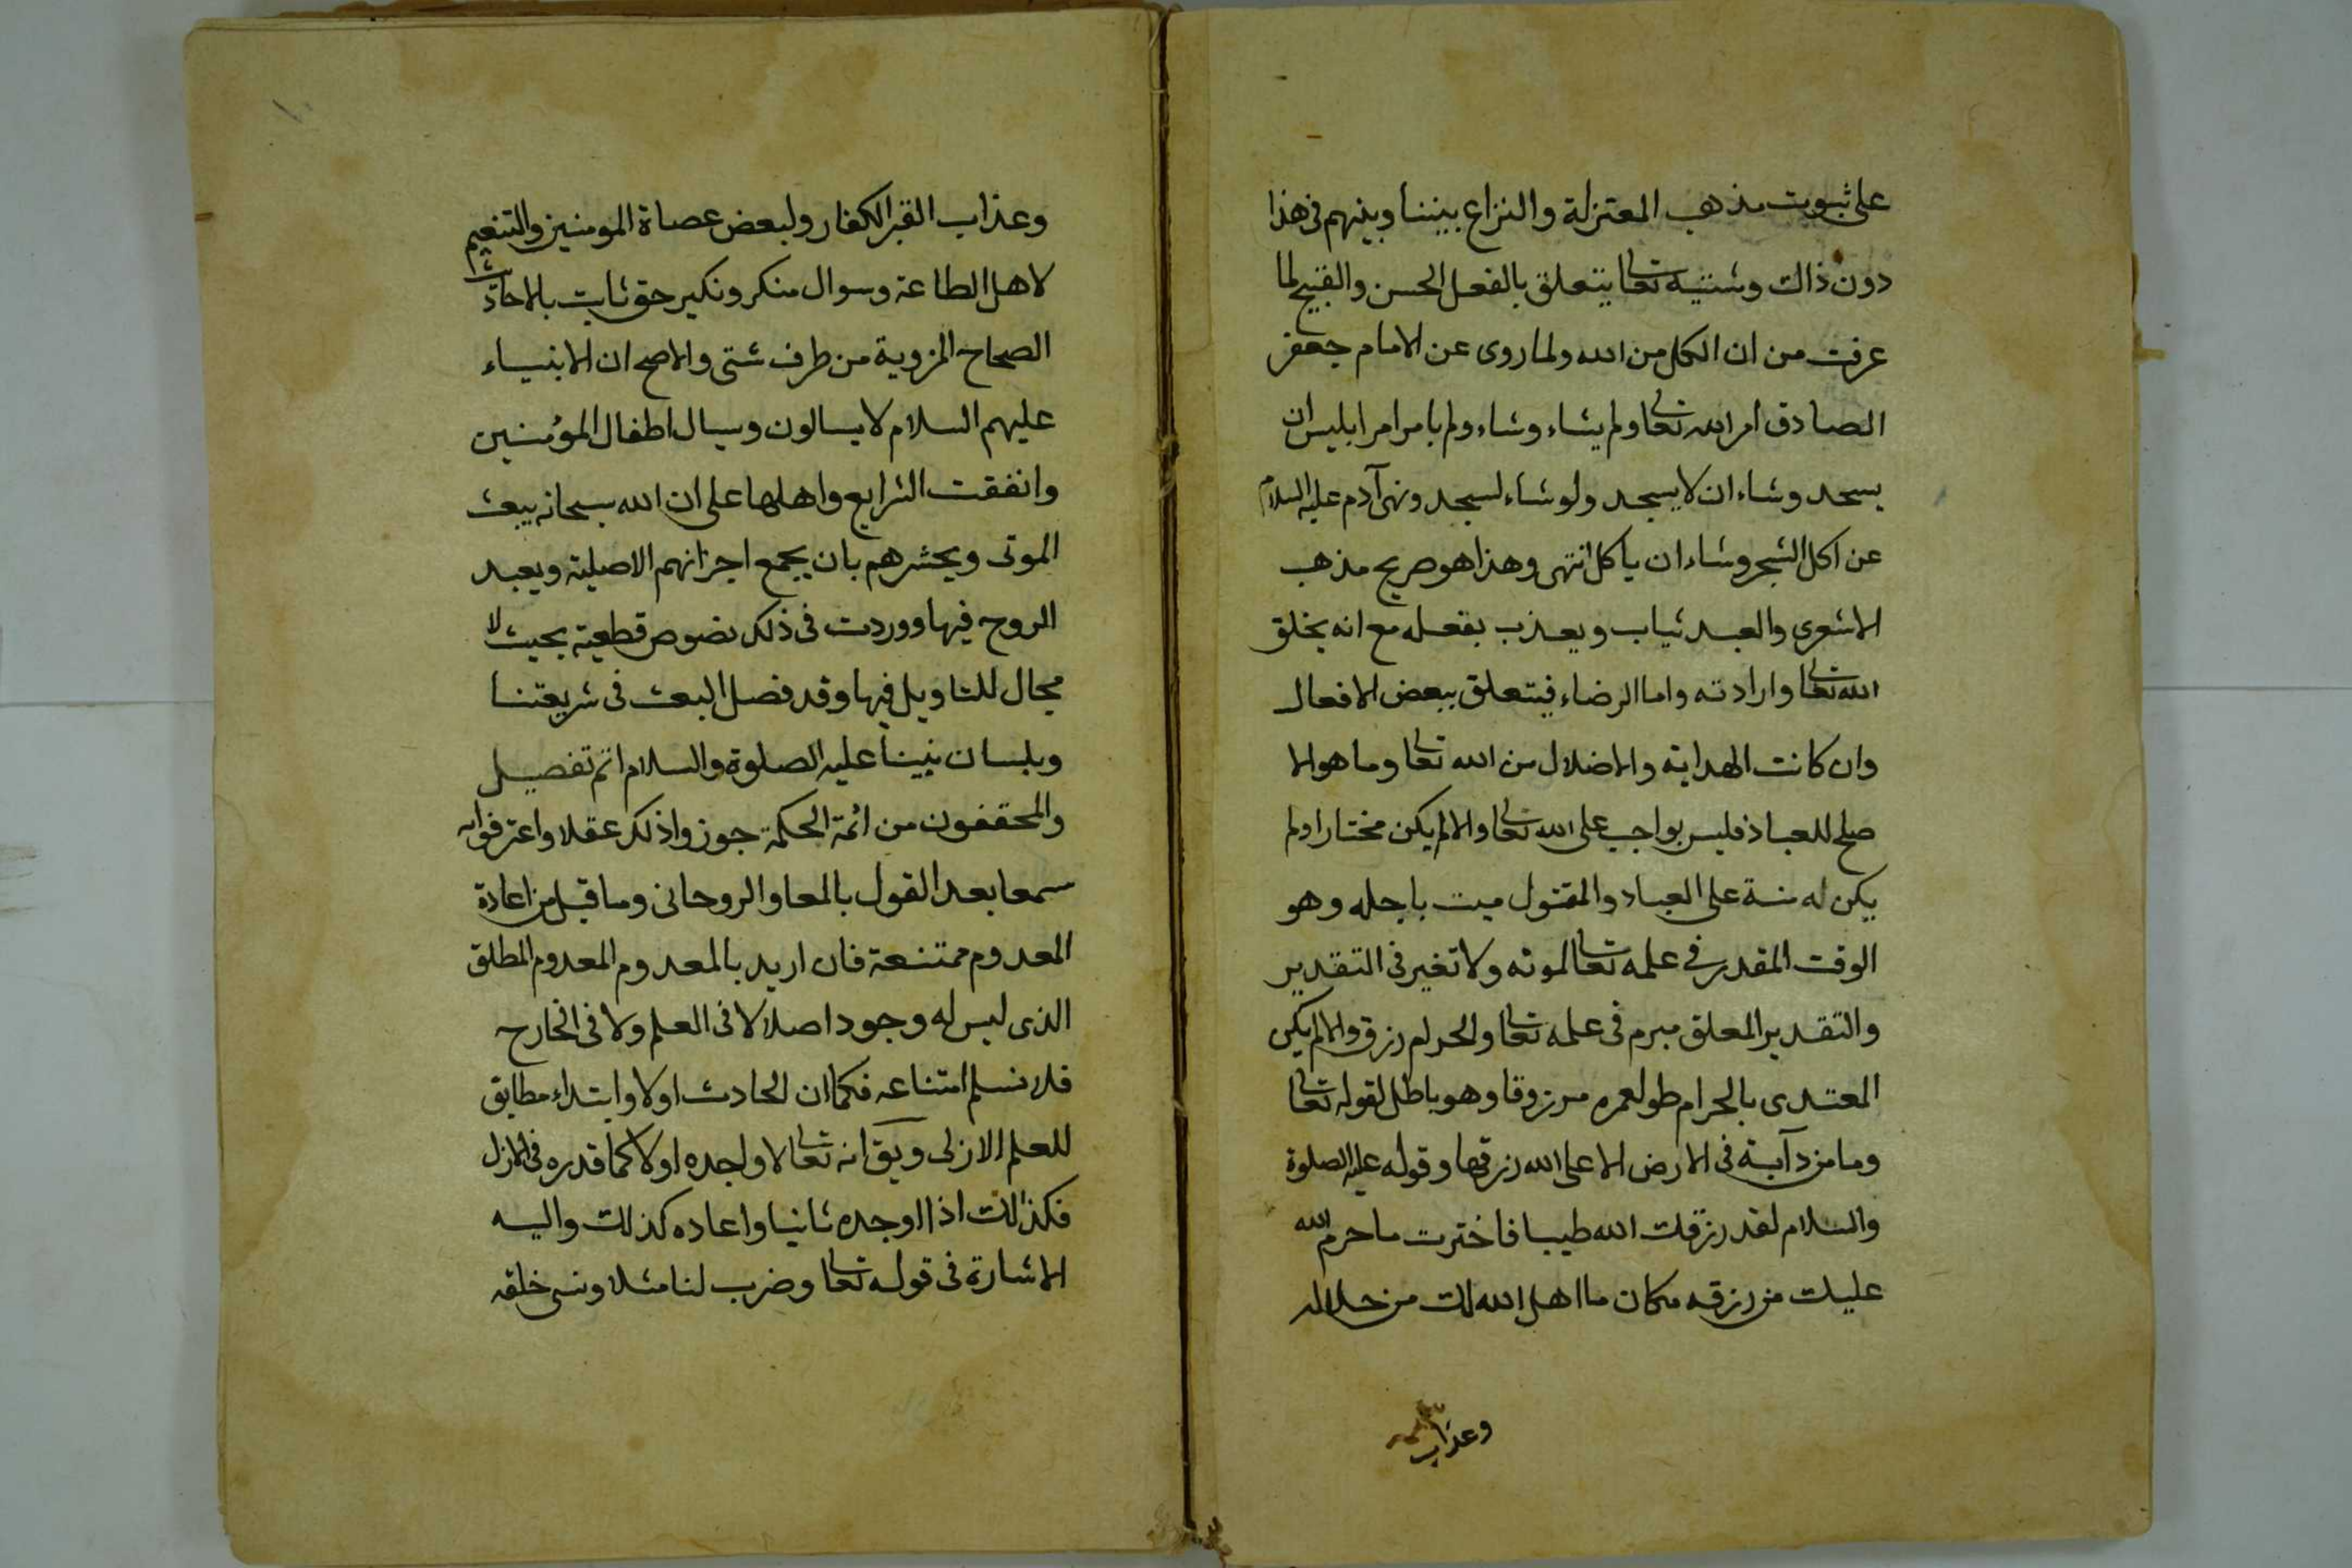 على ثبوت مذهب المعتزلة والنزاع بيننا وبينهم فى هذا
دون ذالك وشئيه تعالى يتعلق بالفعل الحسن والقبيح لما
عرفت من ان الكل من الله ولما روى عن الامام جعفر
الصادق امر الله تعالى ولم يشاء وشاء ولم يامر امر ابليس ان
يسجد وشاء ان لا يسجد ولو شاء لسجد ونهى آدم عليه السلام
عن اكل الشجر وشاء ان ياكل انتهى وهذا هو صريح مذهب
الاشعرى والعبد يثاب ويعذب بفعله مع انه بخلق
الله تعالى وارادته واما الرضاء فيتعلق ببعض الافعال
وان كانت الهداية والاضلال من الله تعالى وما هو الا
صلح للعباد فليس بواجب على الله تعالى والا لم يكن مختارا ولم
يكن له منة على العباد والمقتول ميت باجله وهو
الوقت المقدر فى علمه تعالى لموته ولا تغير فى التقدير
والتقدير المعلق مبرم فى علمه تعالى والحرام رزق والا لم يكن
المعتدى بالحرام طول عمره مرزوقا وهو باطل لقوله تعالى
وما من دآبة فى الارض الا على الله رزقها وقوله عليه الصلوة
والسلام لقد رزقك الله طيبا فاخترت ما حرم الله
عليك من رزقه مكان ما اهل الله لك من حلاله
وعذاب
وعذاب القبر الكفار ولبعض عصاة المومنين والتنعيم
لاهل الطاعة وسوال منكر ونكير حق ثابت بالاحاديث
الصحاح المروية من طرف شتى والاصح ان الانبياء
عليهم السلام لا يسالون ويسال اطفال المؤمنين
واتفقت الشرايع واهلها على ان الله سبحانه يبعث
الموتى ويحشرهم بان يجمع اجزائهم الاصلية ويعيد
الروح فيها ووردت فى ذلك نصوص قطعية بحيث لا
مجال للتاويل فيها وقد فصل البعث فى شريعتنا
وبلسان نبينا عليه الصلوة والسلام اتم تفصيل
والمحققون من ائمة الحكمة جوزوا ذلك عقلا واعترفوا به
سمعا بعد القول بالمعاد الروحانى وما قيل من اعادة
المعدوم ممتنعة فان اريد بالمعدوم المعدوم المطلق
الذى ليس له وجود اصلا لا فى العلم ولا فى الخارج
فلا نسلم امتناعه فكما ان الحادث اولا وابتداء مطابق
للعلم الازلى ويق انه تعالى لا واجده اولا كما قدره فى الازل
فكذالك اذا اوجده ثانيا واعاده كذلك واليه
الاشارة فى قوله تعالى وضرب لنا مثلا ونسى خلقه